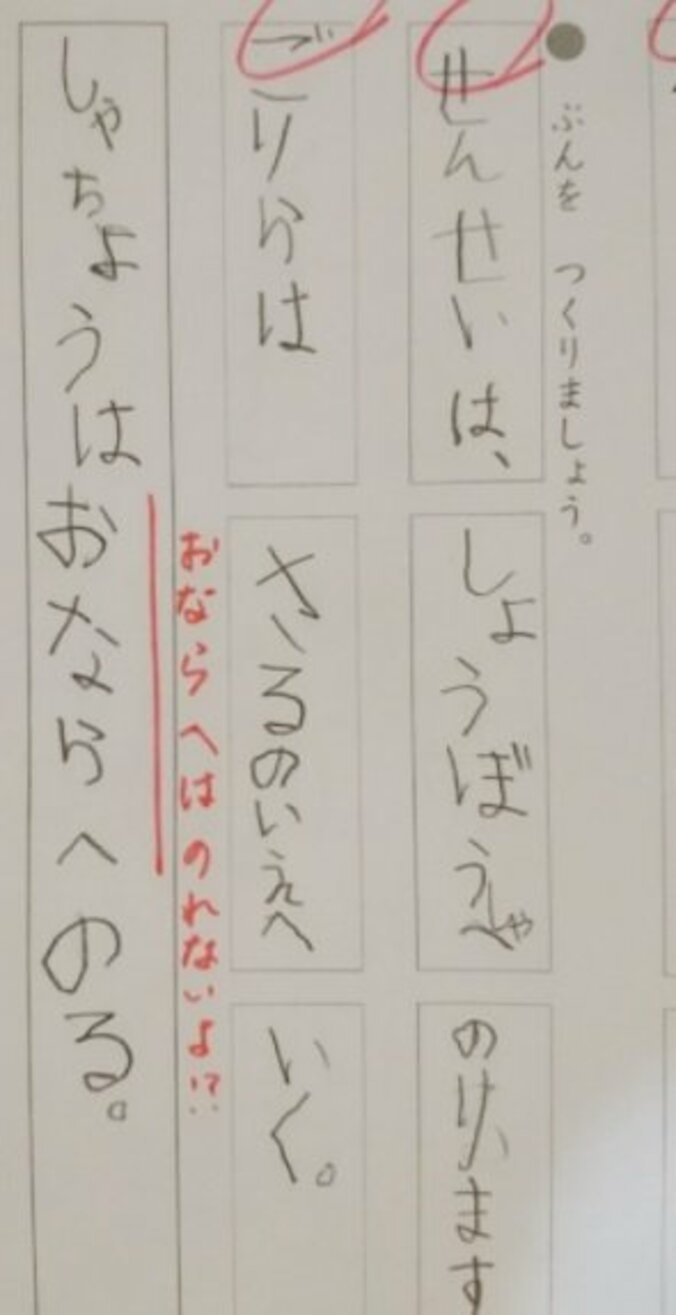 ぶんを つくりましょう。
せんせいは、 しょうぼうしゃへ のります
ごりらは さるのいえへ いく。
おならへはのれないよ!?
しゃちょうはおならへのる。